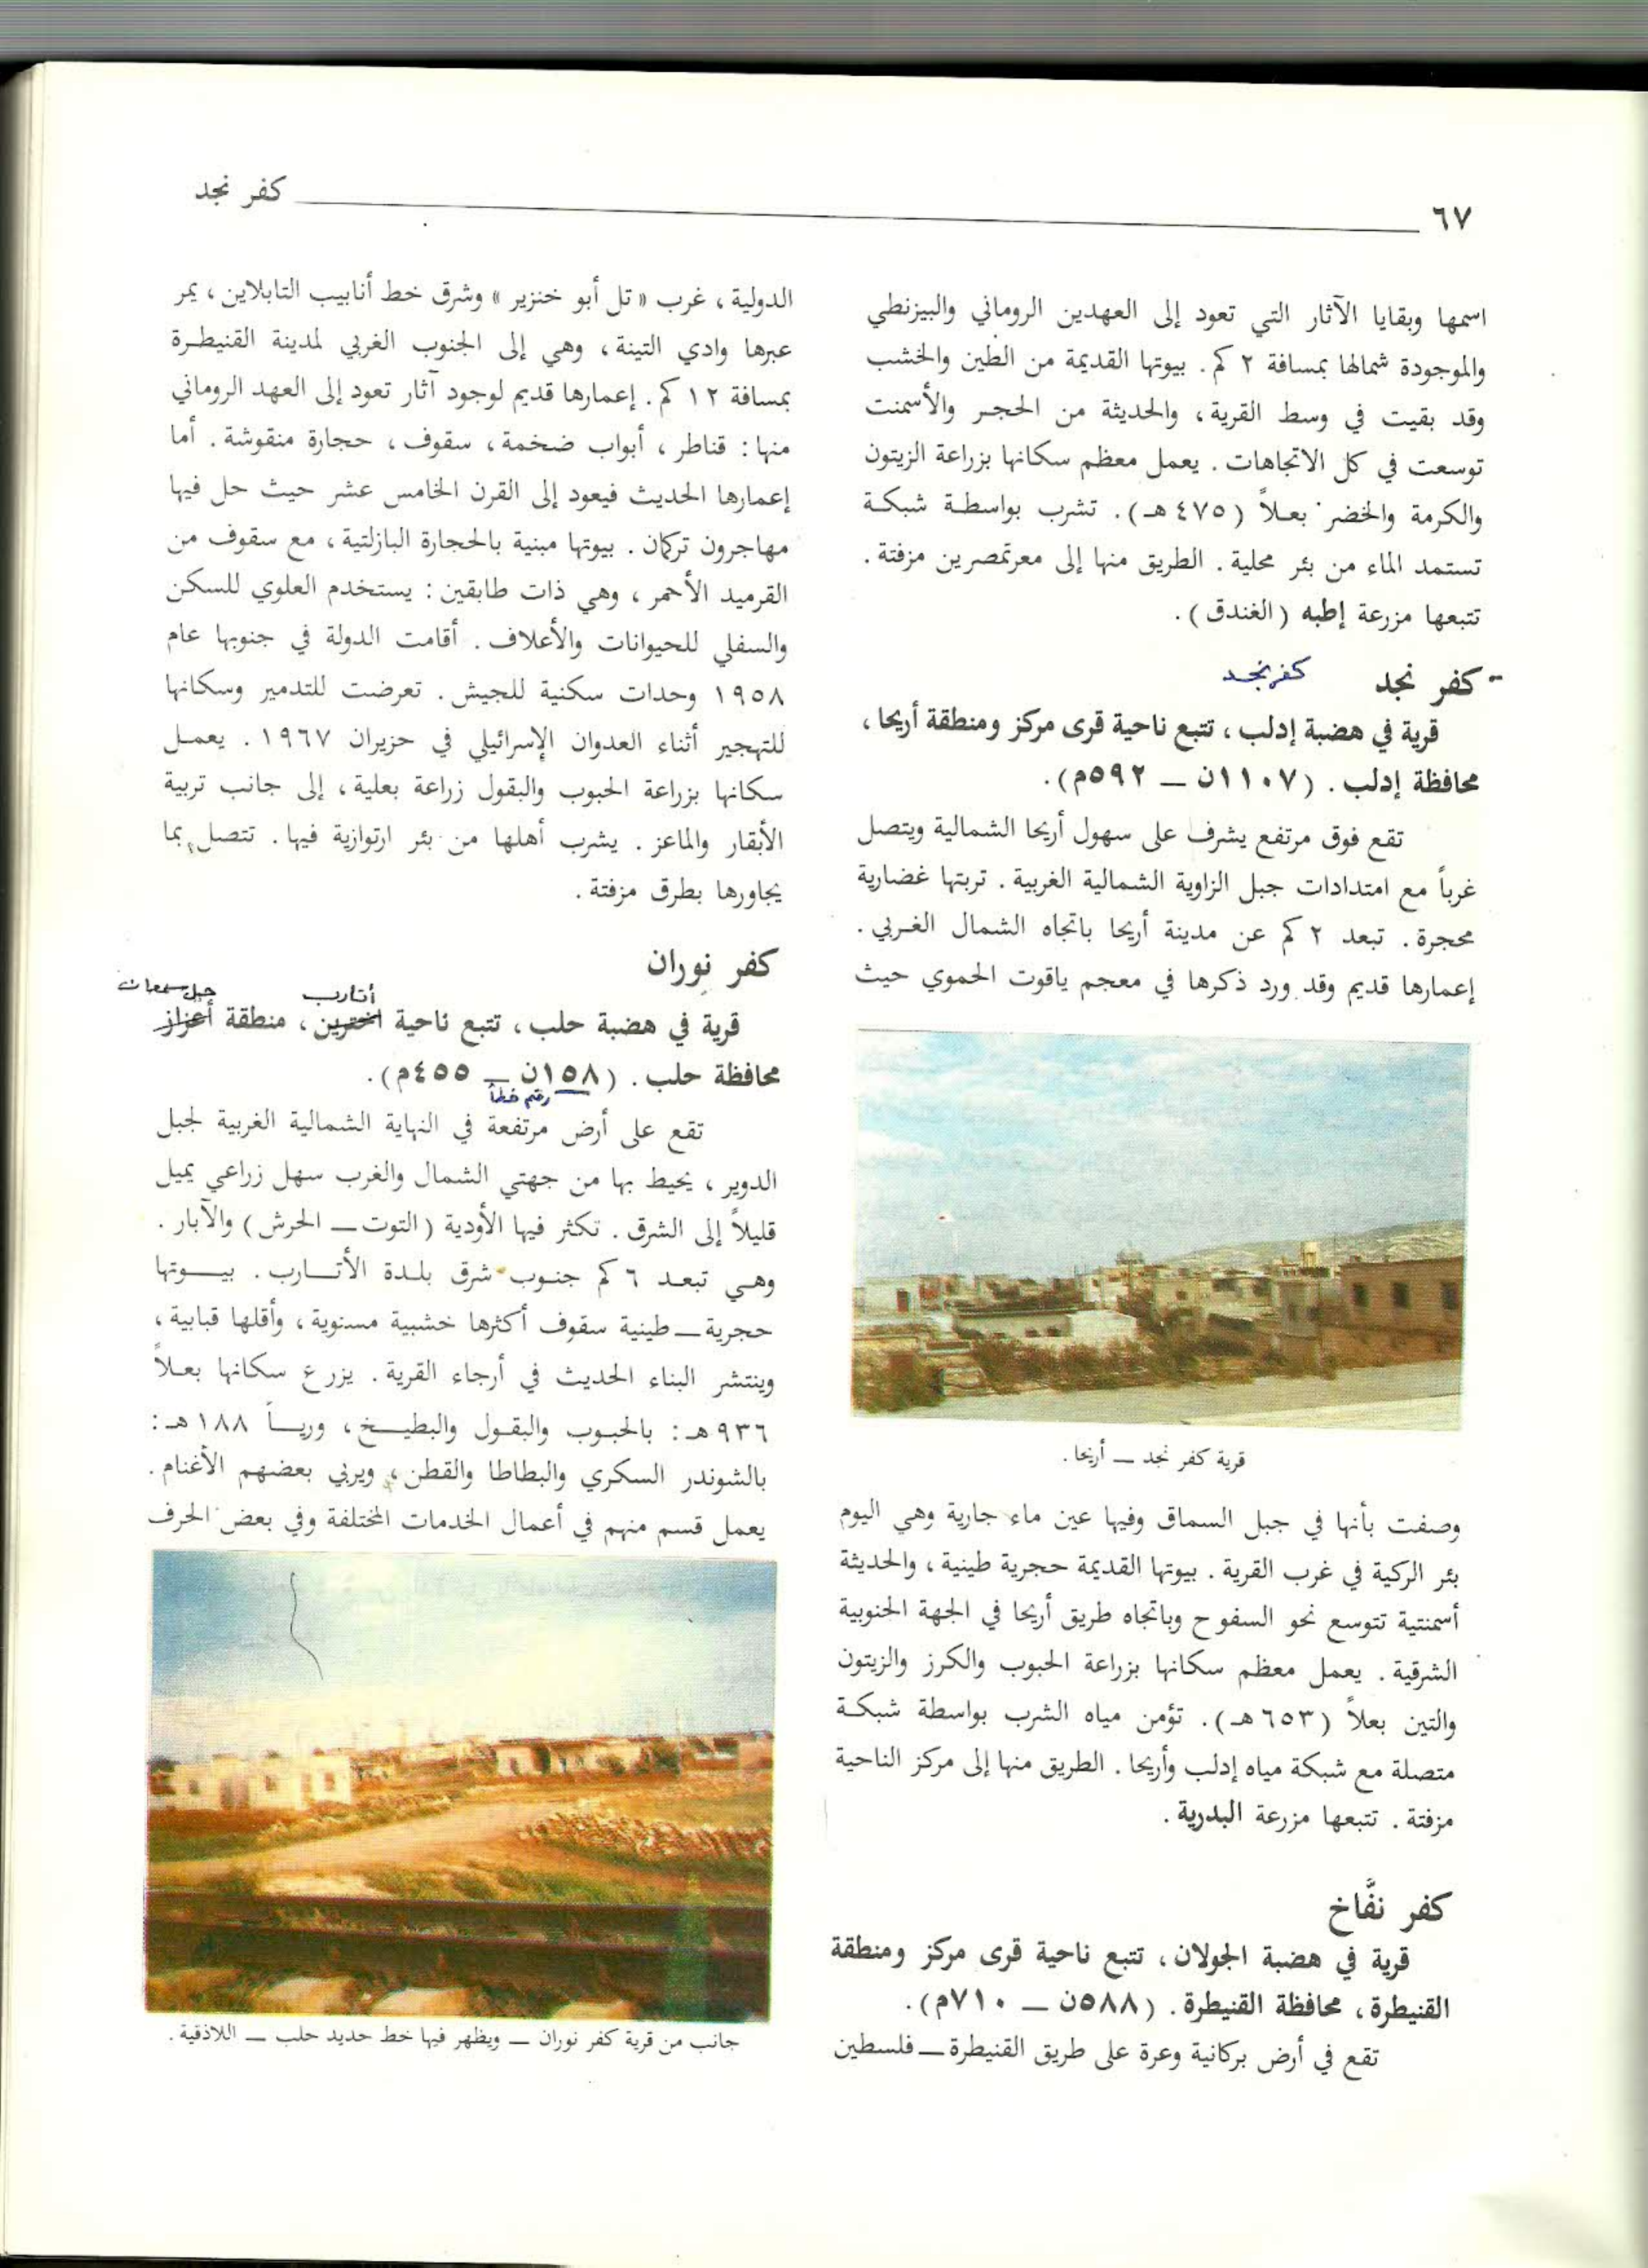 ٦٧
كفر نجد
اسمها وبقايا الآثار التي تعود إلى العهدين الروماني والبيزنطي
والموجودة شمالها بمسافة ٢ كم. بيوتها القديمة من الطين والخشب
وقد بقيت في وسط القرية، والحديثة من الحجر والأسمنت
توسعت في كل الاتجاهات. يعمل معظم سكانها بزراعة الزيتون
والكرمة والخضر بعلاً (٤٧٥ هـ). تشرب بواسطة شبكة
تستمد الماء من بئر محلية. الطريق منها إلى معرتمصرين مزفتة.
تتبعها مزرعة إطبه (الغندق).
- كفر نجد كفر نجد
قرية في هضبة إدلب، تتبع ناحية قرى مركز ومنطقة أريحا،
محافظة إدلب. (١١٠٧ن — ٥٩٢م).
تقع فوق مرتفع يشرف على سهول أريحا الشمالية ويتصل
غرباً مع امتدادات جبل الزاوية الشمالية الغربية. تربتها غضارية
محجرة. تبعد ٢ كم عن مدينة أريحا باتجاه الشمال الغربي.
إعمارها قديم وقد ورد ذكرها في معجم ياقوت الحموي حيث
قرية كفر نجد — أريحا.
وصفت بأنها في جبل السماق وفيها عين ماء جارية وهي اليوم
بئر الركية في غرب القرية. بيوتها القديمة حجرية طينية، والحديثة
أسمنتية تتوسع نحو السفوح وباتجاه طريق أريحا في الجهة الجنوبية
الشرقية. يعمل معظم سكانها بزراعة الحبوب والكرز والزيتون
والتين بعلاً (٦٥٣ هـ). تؤمن مياه الشرب بواسطة شبكة
متصلة مع شبكة مياه إدلب وأريحا. الطريق منها إلى مركز الناحية
مزفتة. تتبعها مزرعة البدرية.
كفر نفَّاخ
قرية في هضبة الجولان، تتبع ناحية قرى مركز ومنطقة
القنيطرة، محافظة القنيطرة. (٥٨٨ن — ٧١٠م).
تقع في أرض بركانية وعرة على طريق القنيطرة — فلسطين
الدولية، غرب «تل أبو خنزير» وشرق خط أنابيب التابلاين، يمر
عبرها وادي التينة، وهي إلى الجنوب الغربي لمدينة القنيطرة
بمسافة ١٢ كم. إعمارها قديم لوجود آثار تعود إلى العهد الروماني
منها: قناطر، أبواب ضخمة، سقوف، حجارة منقوشة. أما
إعمارها الحديث فيعود إلى القرن الخامس عشر حيث حل فيها
مهاجرون تركمان. بيوتها مبنية بالحجارة البازلتية، مع سقوف من
القرميد الأحمر، وهي ذات طابقين: يستخدم العلوي للسكن
والسفلي للحيوانات والأعلاف. أقامت الدولة في جنوبها عام
١٩٥٨ وحدات سكنية للجيش. تعرضت للتدمير وسكانها
للتهجير أثناء العدوان الإسرائيلي في حزيران ١٩٦٧. يعمل
سكانها بزراعة الحبوب والبقول زراعة بعلية، إلى جانب تربية
الأبقار والماعز. يشرب أهلها من بئر ارتوازية فيها. تتصل بما
يجاورها بطرق مزفتة.
كفر نوران
أتارب جبل سمعان
قرية في هضبة حلب، تتبع ناحية اخترين، منطقة أعزاز
محافظة حلب. (١٥٨ن — ٤٥٥م).
رقم خطأ
تقع على أرض مرتفعة في النهاية الشمالية الغربية لجبل
الدوير، يحيط بها من جهتي الشمال والغرب سهل زراعي يميل
قليلاً إلى الشرق. تكثر فيها الأودية (التوت — الحرش) والآبار.
وهي تبعد ٦ كم جنوب شرق بلدة الأتارب. بيوتها
حجرية — طينية سقوف أكثرها خشبية مستوية، وأقلها قبابية،
وينتشر البناء الحديث في أرجاء القرية. يزرع سكانها بعلاً
٩٣٦ هـ: بالحبوب والبقول والبطيخ، ورياً ١٨٨ هـ:
بالشوندر السكري والبطاطا والقطن، ويربي بعضهم الأغنام.
يعمل قسم منهم في أعمال الخدمات المختلفة وفي بعض الحرف
جانب من قرية كفر نوران — ويظهر فيها خط حديد حلب — اللاذقية.